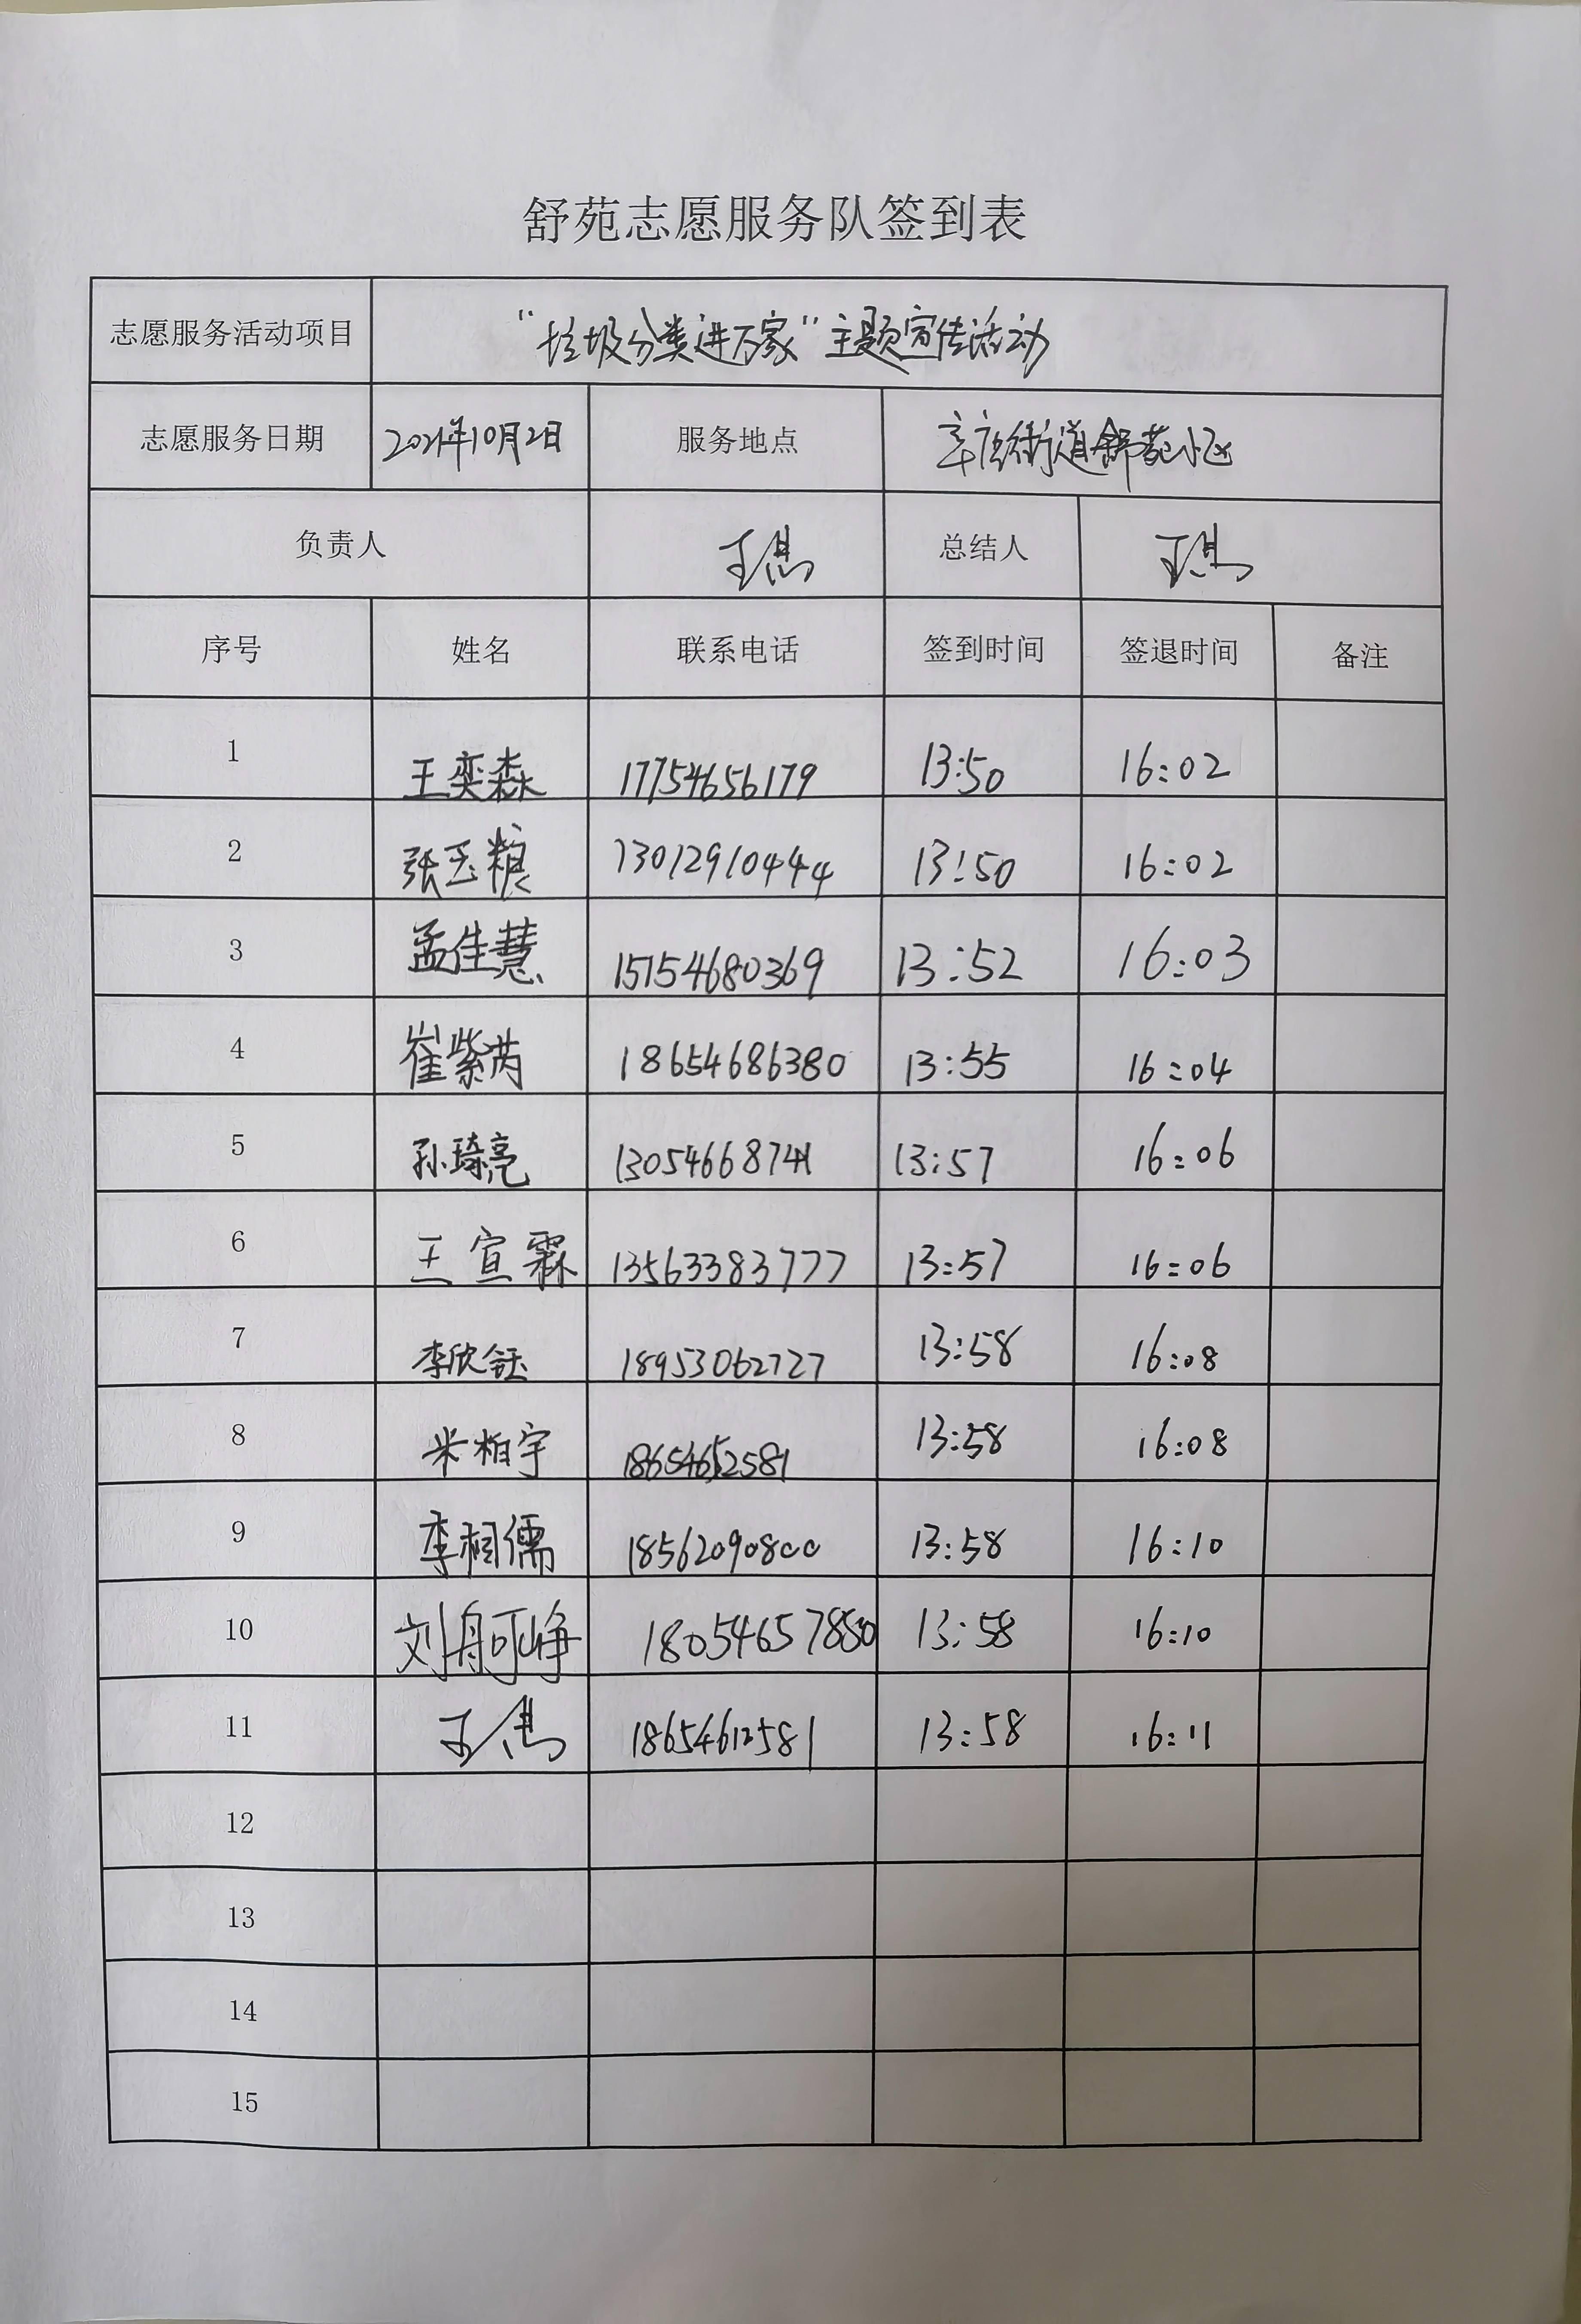 舒苑志愿服务队签到表
志愿服务活动项目 “垃圾分类进万家”主题宣传活动
志愿服务日期 2021年10月2日 服务地点 辛店街道舒苑小区
负责人 总结人
序号 姓名 联系电话 签到时间 签退时间 备注
1 王奕森 17754656179 13:50 16:02
2 张玉粮 13012910444 13:50 16:02
3 孟佳慧 15154680369 13:52 16:03
4 崔紫芮 18654686380 13:55 16:04
5 孙琦亮 13054668741 13:57 16:06
6 王宣霖 13563383777 13:57 16:06
7 李欣钰 18953062727 13:58 16:08
8 米柏宇 13:58 16:08
9 李桐儒 18562090800 13:58 16:10
10 刘舟可峥 18054657850 13:58 16:10
11 18654612581 13:58 16:11
12
13
14
15